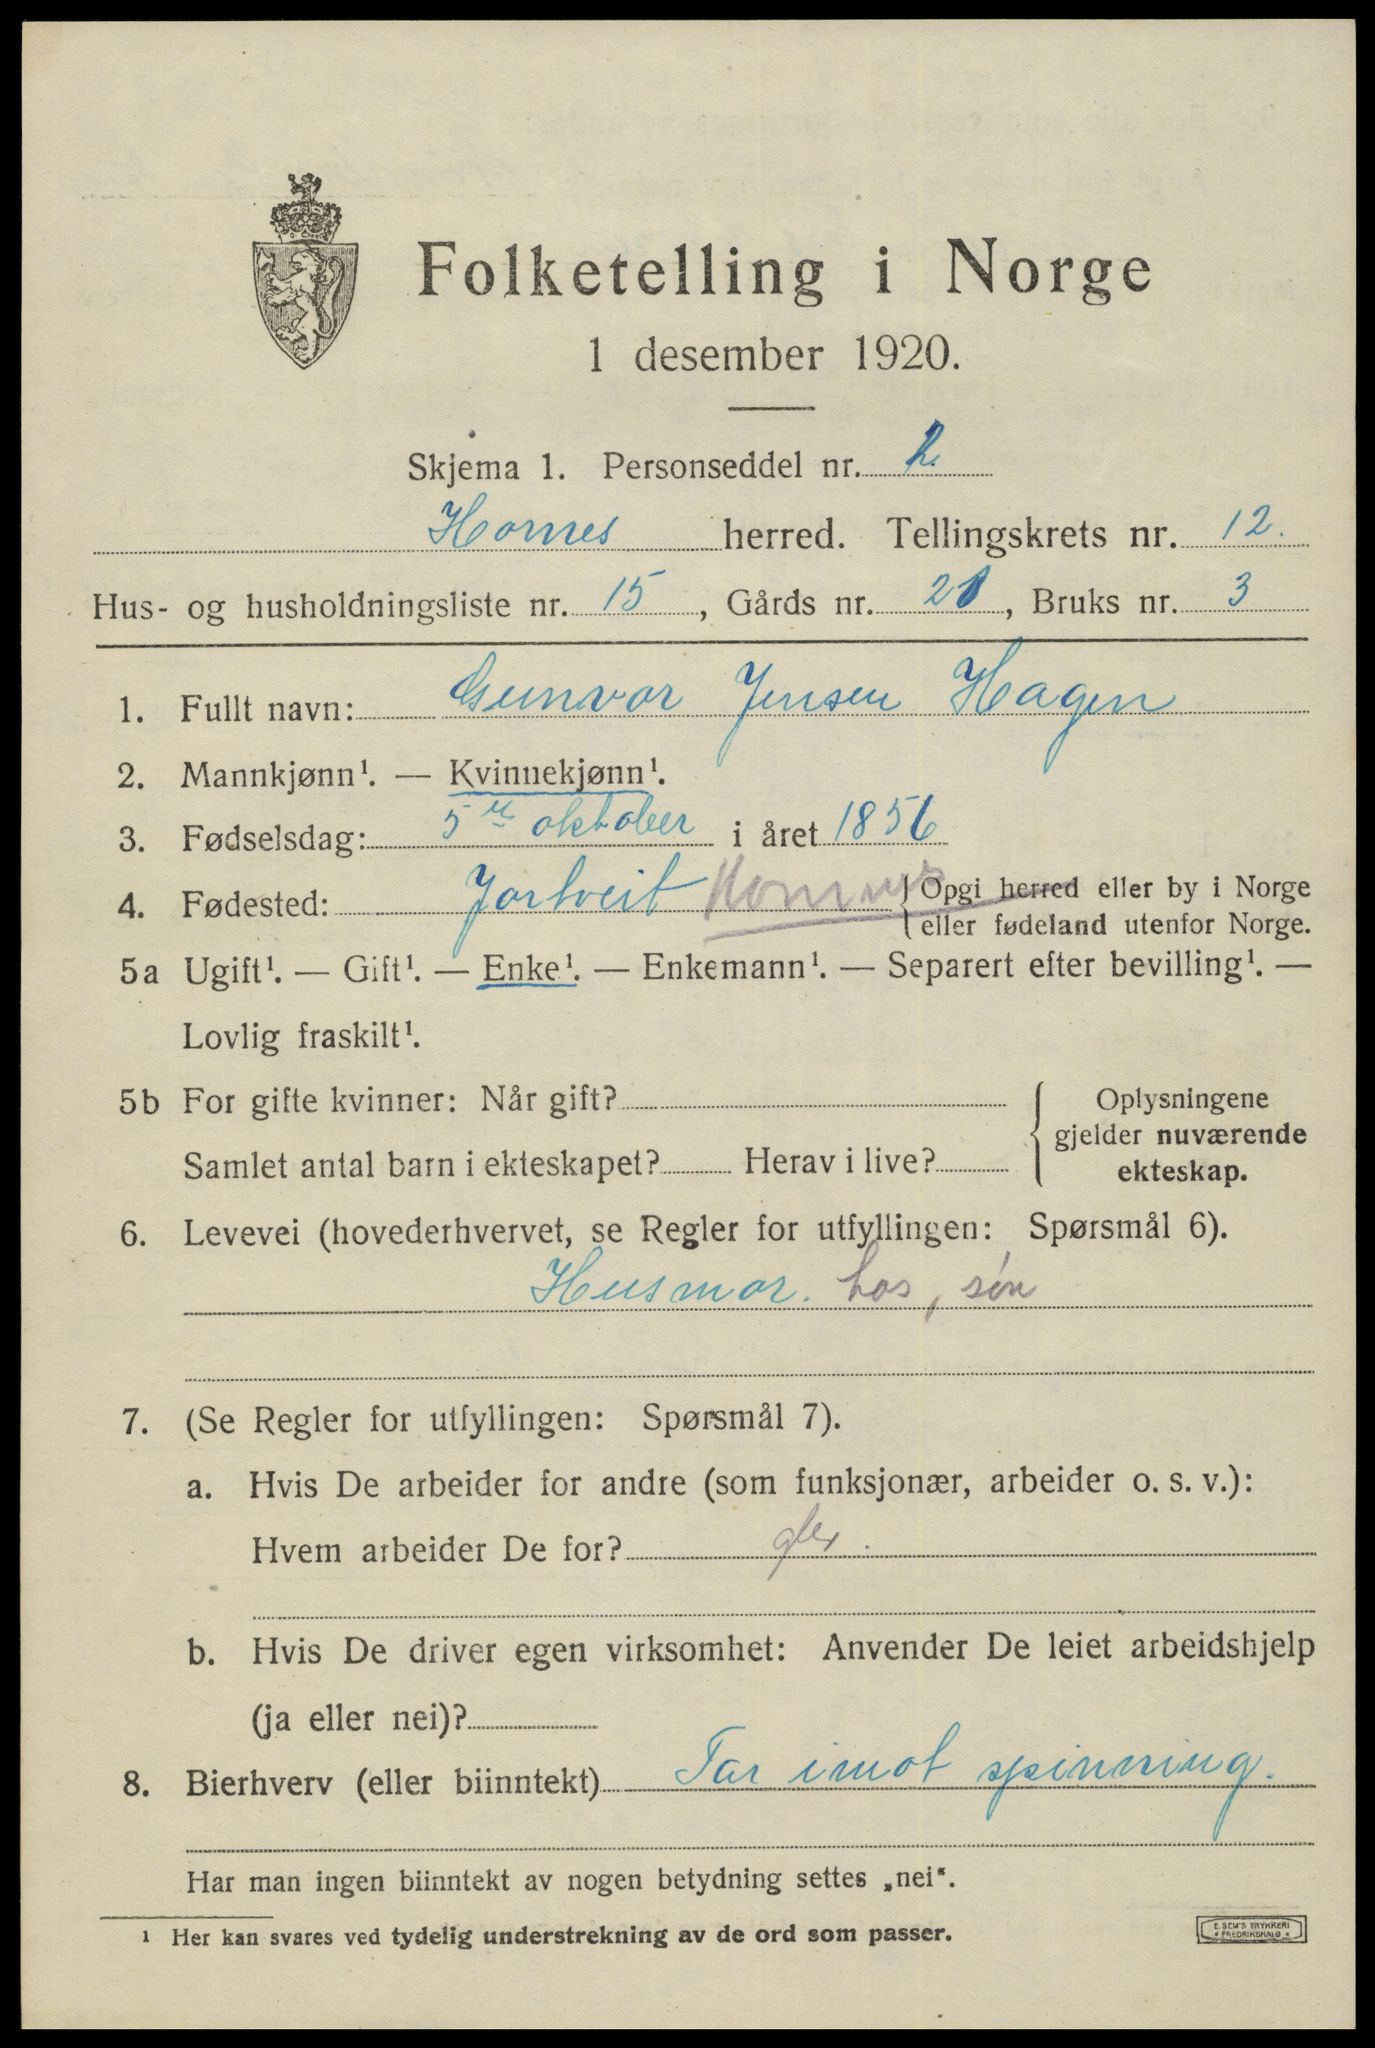 Folketelling i Norge
1 desember 1920.
Skjema 1. Personseddel nr. 2
Hornes herred. Tellingskrets nr. 12.
Hus- og husholdningsliste nr. 15, Gårds nr. 21, Bruks nr. 3
1. Fullt navn: Gunvor Jensen Hagen
2. Mannkjønn¹. — Kvinnekjønn¹.
3. Fødselsdag: 5 oktober i året 1856
4. Fødested: Jortveit Hornnes { Opgi herred eller by i Norge
eller fødeland utenfor Norge.
5a Ugift¹. — Gift¹. — Enke¹. — Enkemann¹. — Separert efter bevilling¹. —
Lovlig fraskilt¹.
5b For gifte kvinner: Når gift?
Samlet antal barn i ekteskapet? Herav i live?
{ Oplysningene
gjelder nuværende
ekteskap.
6. Levevei (hovederhvervet, se Regler for utfyllingen: Spørsmål 6).
Husmor. hos, søn
7. (Se Regler for utfyllingen: Spørsmål 7).
a. Hvis De arbeider for andre (som funksjonær, arbeider o. s. v.):
Hvem arbeider De for?
b. Hvis De driver egen virksomhet: Anvender De leiet arbeidshjelp
(ja eller nei)?
8. Bierhverv (eller biinntekt) Tar imot spinning.
Har man ingen biinntekt av nogen betydning settes „nei“.
¹ Her kan svares ved tydelig understrekning av de ord som passer.
E. SEM'S TRYKKERI
* FREDRIKSHALD *